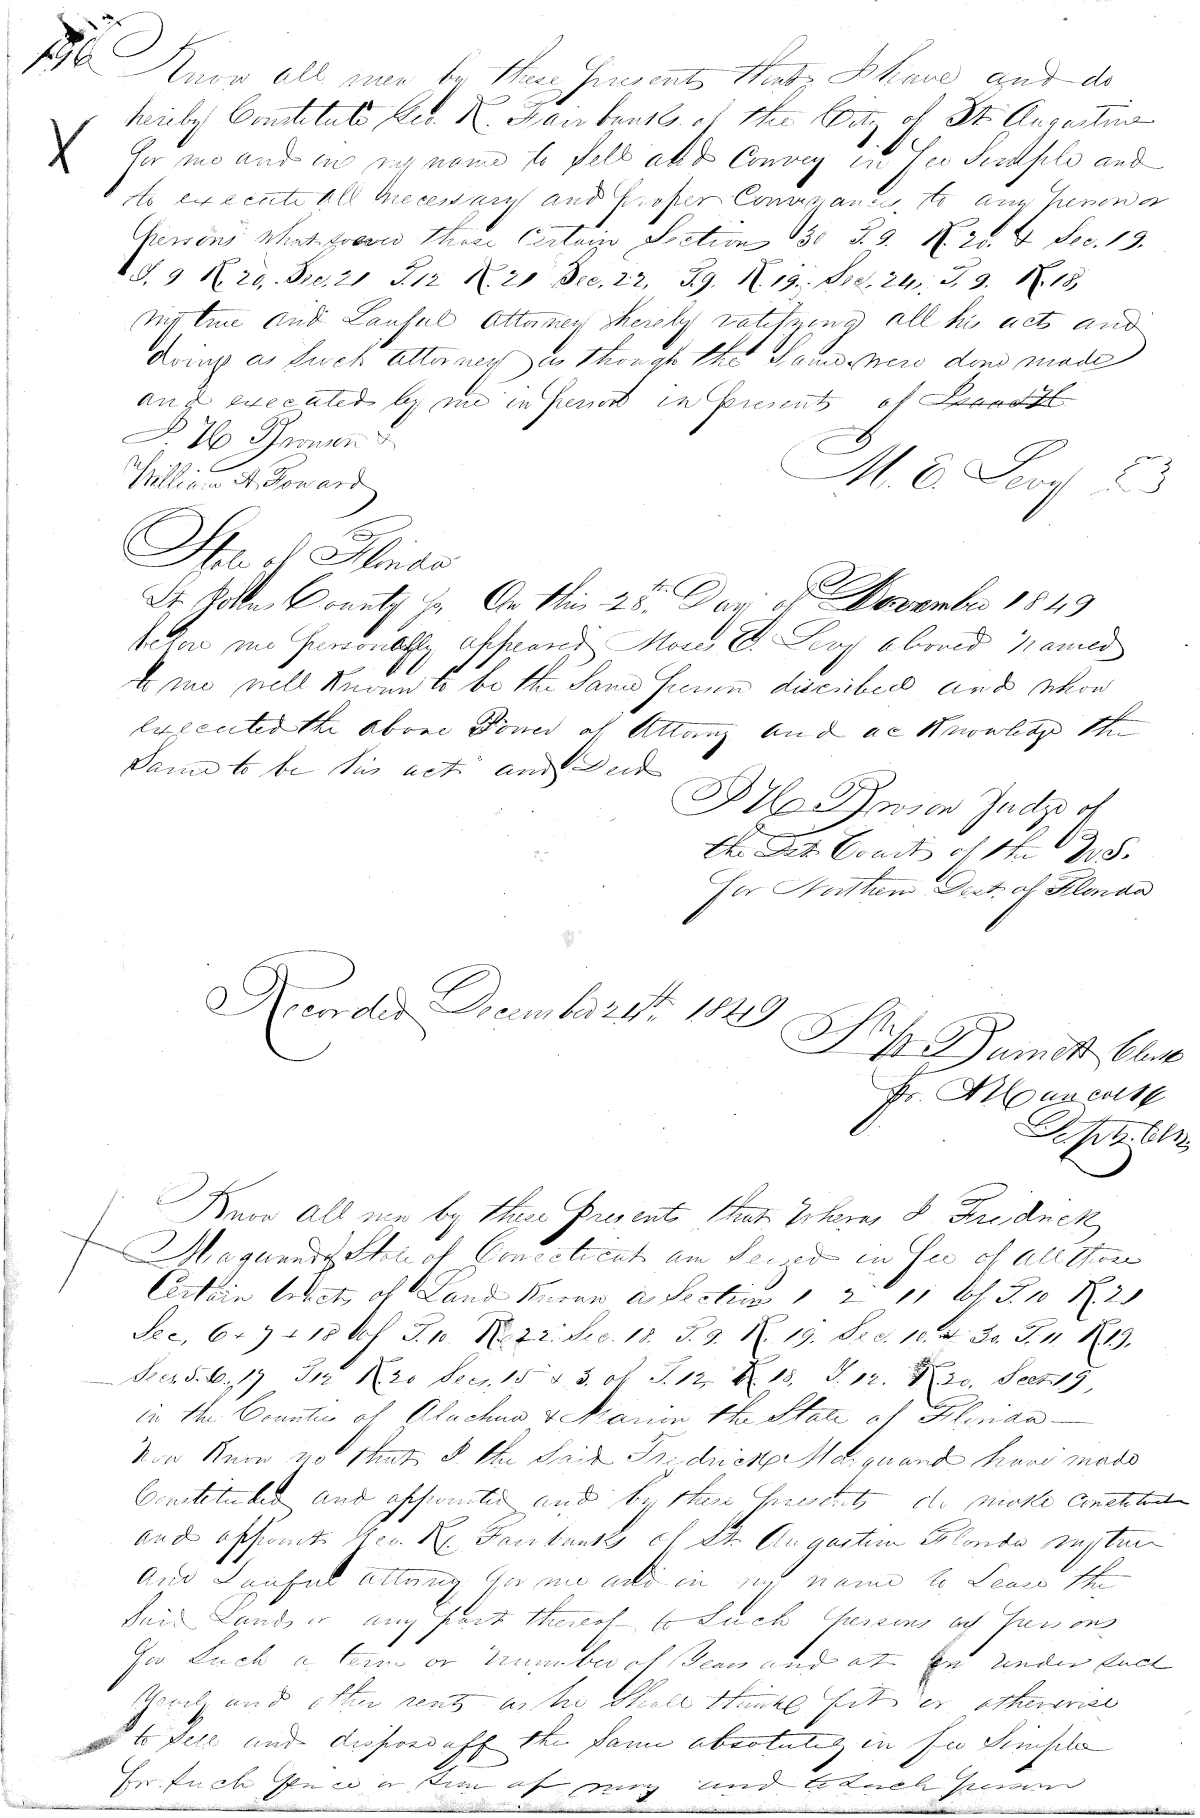 196
Know all men by these presents that I have and do
hereby Constitute Geo. R. Fairbanks of the City of St Augustine
for me and in my name to Sell and Convey in fee Simple and
to execute all necessary and proper Conveyances to any person or
persons whatsoever those Certain Sections 30 T. 9. R. 20. & Sec. 19.
T. 9 R. 20, Sec. 21 T. 12 R. 21 Sec. 22, T. 9. R. 19, Sec. 24, T. 9. R. 18,
my true and Lauful attorney hereby ratifying all his acts and
doings as Such attorney as though the Same were done made
and executed by me in person in presents of
H Bronson &
William A. Forward
M. E. Levy
State of Florida
St. Johns County On this 28th Day of November 1849
before me personally appeared Moses E. Levy aboved named
to me well Known to be the Same person discribed and whow
executed the above Power of Attorny and ac Knowledge the
Same to be his act and Deed
H Bronson Judge of
the Dst. Court of the U.S.
for Northern Dest. of Florida
Recorded December 24th. 1849
Burnett Clerk
pr.
Depty. Clk
Know all men by these Presents that Wheras I Fredrick
Maquand State of Conecticut am Seized in fee of all those
Certain tracts of Land Known as Section 1 2 11 of T. 10 R. 21
Sec, 6 + 7 + 18 of T. 10. R. 22. Sec. 18. T. 9. R. 19. Sec. 10. & 30 T. 11 R. 19.
Secs. 5. 6. 17 T 12 R. 20 Secs. 15 & 3. of T. 12, R. 18, T. 12. R. 20, Sect. 19,
in the Counties of Alachua & Marion the State of Florida —
Now Know ye that I the Said Fredrick Marquand have made
Constituted and appointed and by these presents do make Constitute
and appoint Geo. R. Fairbanks of St. Augustine Florida my true
and Lauful attorny for me and in my name to Lease the
Said Lands or any part thereof to Such persons or persons
for Such a term or number of Years and at or under such
Yearly and other rents as he Shall think fit or otherwise
to Sell and dispose aff the Same absolutely in fee Simple
for Such price or Sum of mony and to Such person